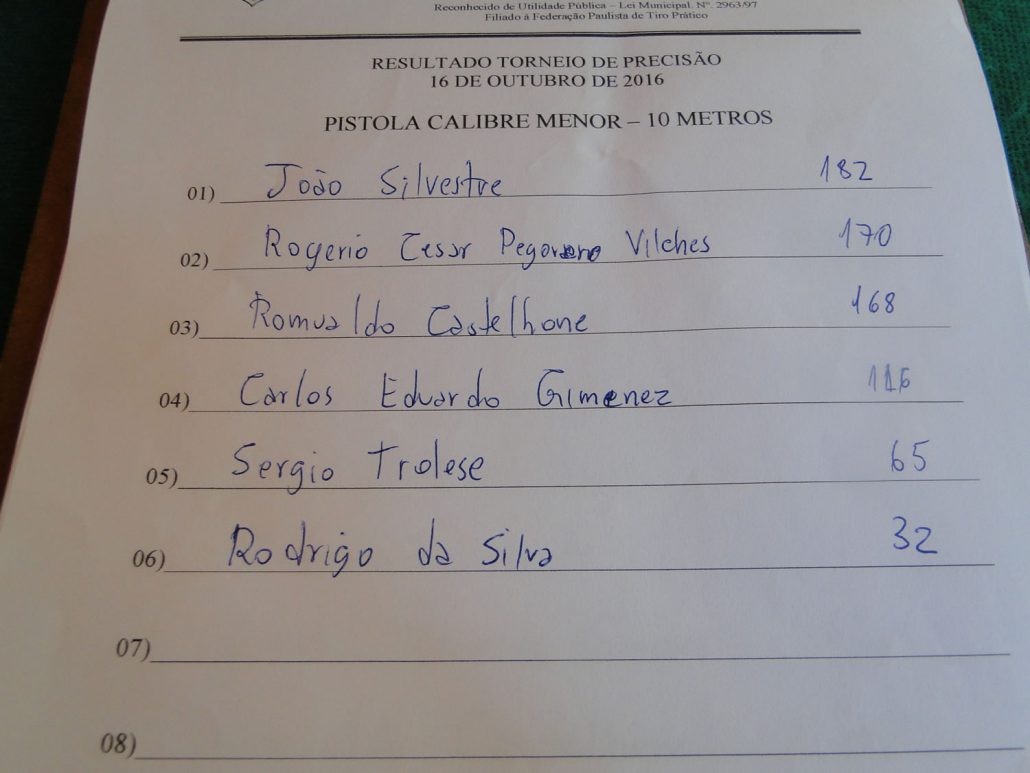 Reconhecido de Utilidade Pública – Lei Municipal. Nº. 2963/97
Filiado à Federação Paulista de Tiro Prático
RESULTADO TORNEIO DE PRECISÃO
16 DE OUTUBRO DE 2016
PISTOLA CALIBRE MENOR – 10 METROS
01) João Silvestre 182
02) Rogerio Cesar Vilches 170
03) Romualdo Castelhone 168
04) Carlos Eduardo Gimenez 116
05) Sergio Trolese 65
06) Rodrigo da Silva 32
07)
08)